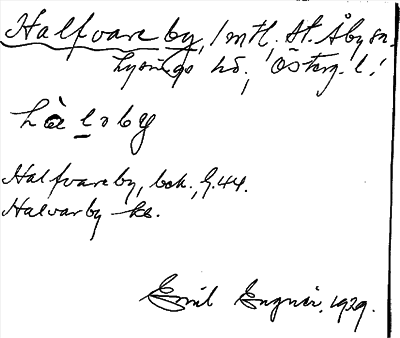 Halfvare by, 1 mtl, St. Åby sn.
Lysings hd., Österg. l.
hàloby
Halfvareby, bok., G.44.
Halvarby ke.
Emil Engner. 1929.